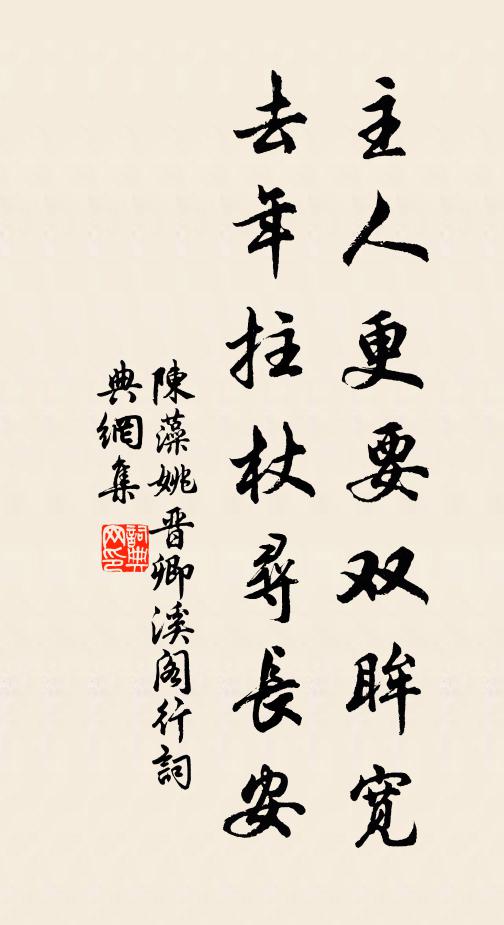 主人更要双眸寬
去年拄杖尋長安
陳藻姚晋卿溪阁行詞
典網集
詞典网印